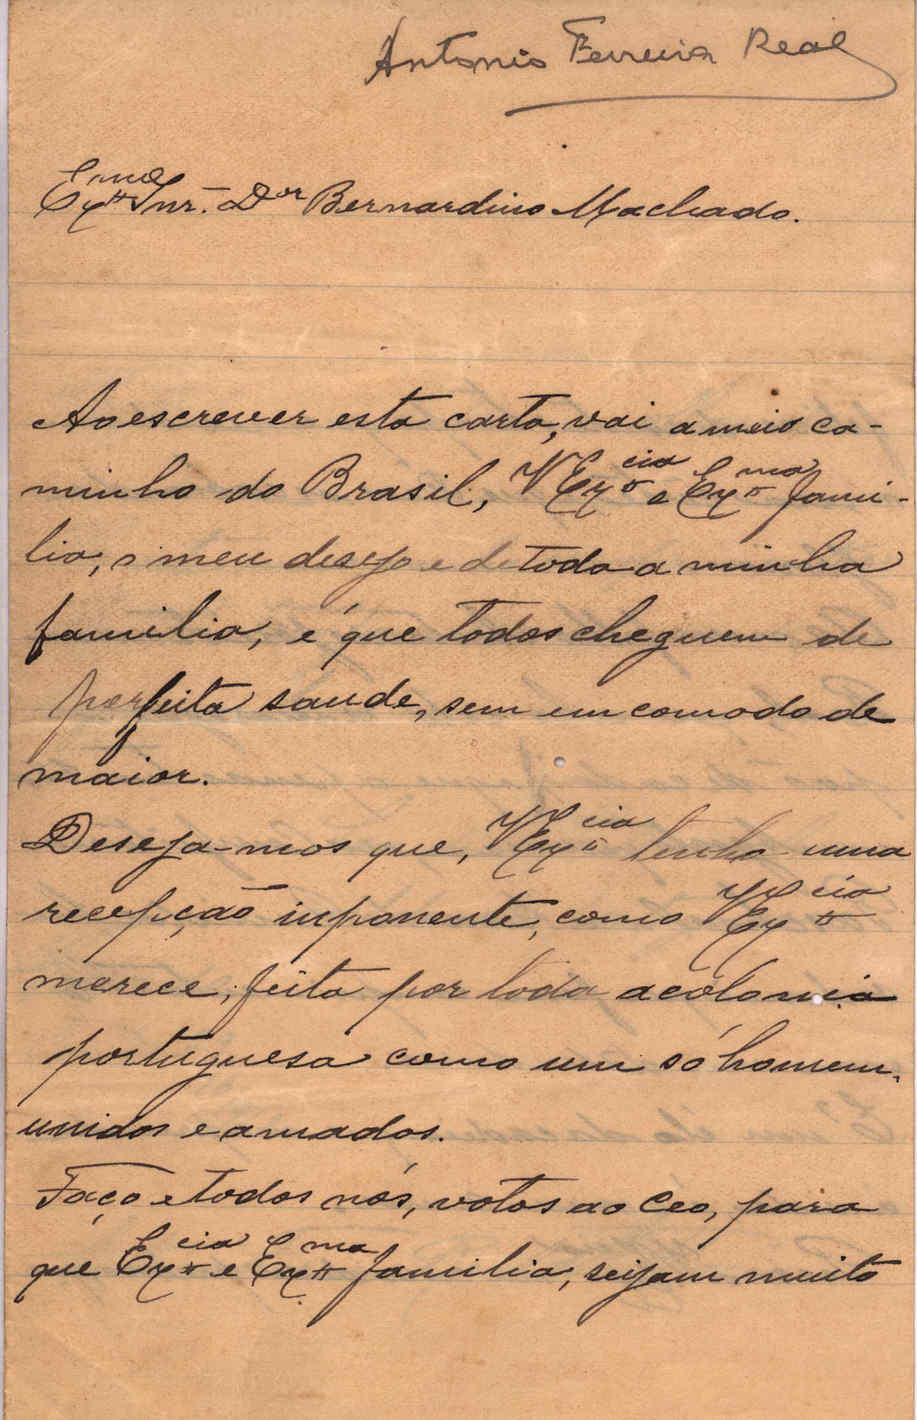 Antonio Ferreira Real
Exmo Snr. Dor Bernardino Machado.
Ao escrever esta carta, vai a meio ca-
minho do Brasil, V Excia e Exma fami-
lia, o meu desejo e de toda a minha
familia, é que todos cheguem de
perfeita saude, sem emcomodo de
maior.
Deseja-mos que, V Excia tenha uma
recepção inponente, como V Excia
merece, feita por toda a colonia
portuguesa como um só homem,
unidos e amados.
Faço e todos nós, votos ao Ceo, para
que Excia e Exma familia, seijam muito